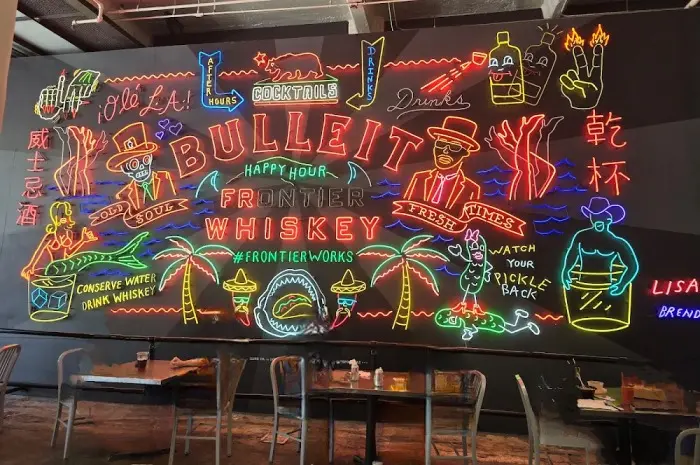 ¡Olé L.A.!
AFTER
HOURS
COCKTAILS
DRINKS
Drinks
威士忌酒
乾杯
BULLEIT
HAPPY HOUR
FRONTIER
WHISKEY
#FRONTIERWORKS
OLD SOUL
FRESH TIMES
CONSERVE WATER
DRINK WHISKEY
WATCH
YOUR
PICKLE
BACK
LISA
BREND